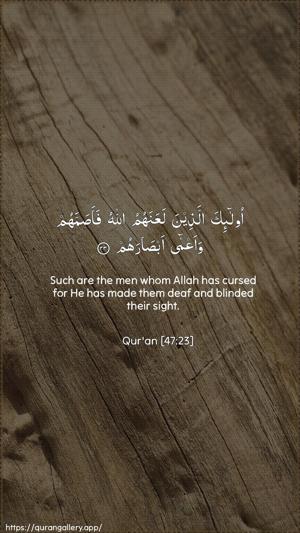 أُولَٰٓئِكَ الَّذِينَ لَعَنَهُمُ اللَّهُ فَأَصَمَّهُمْ
وَأَعْمَىٰٓ أَبْصَارَهُمْ ﴿٢٣﴾
Such are the men whom Allah has cursed
for He has made them deaf and blinded
their sight.
Qur'an [47:23]
https://qurangallery.app/